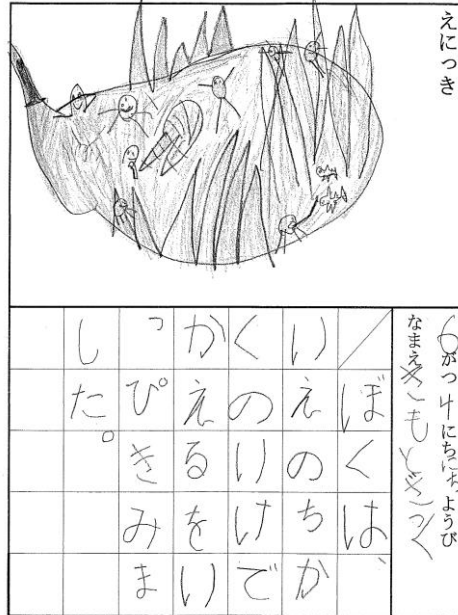 えにっき
6がつ4にちにちようび
なまえ
ぼくは、
いえのちか
くのいけで
かえるをい
っぴきみま
した。